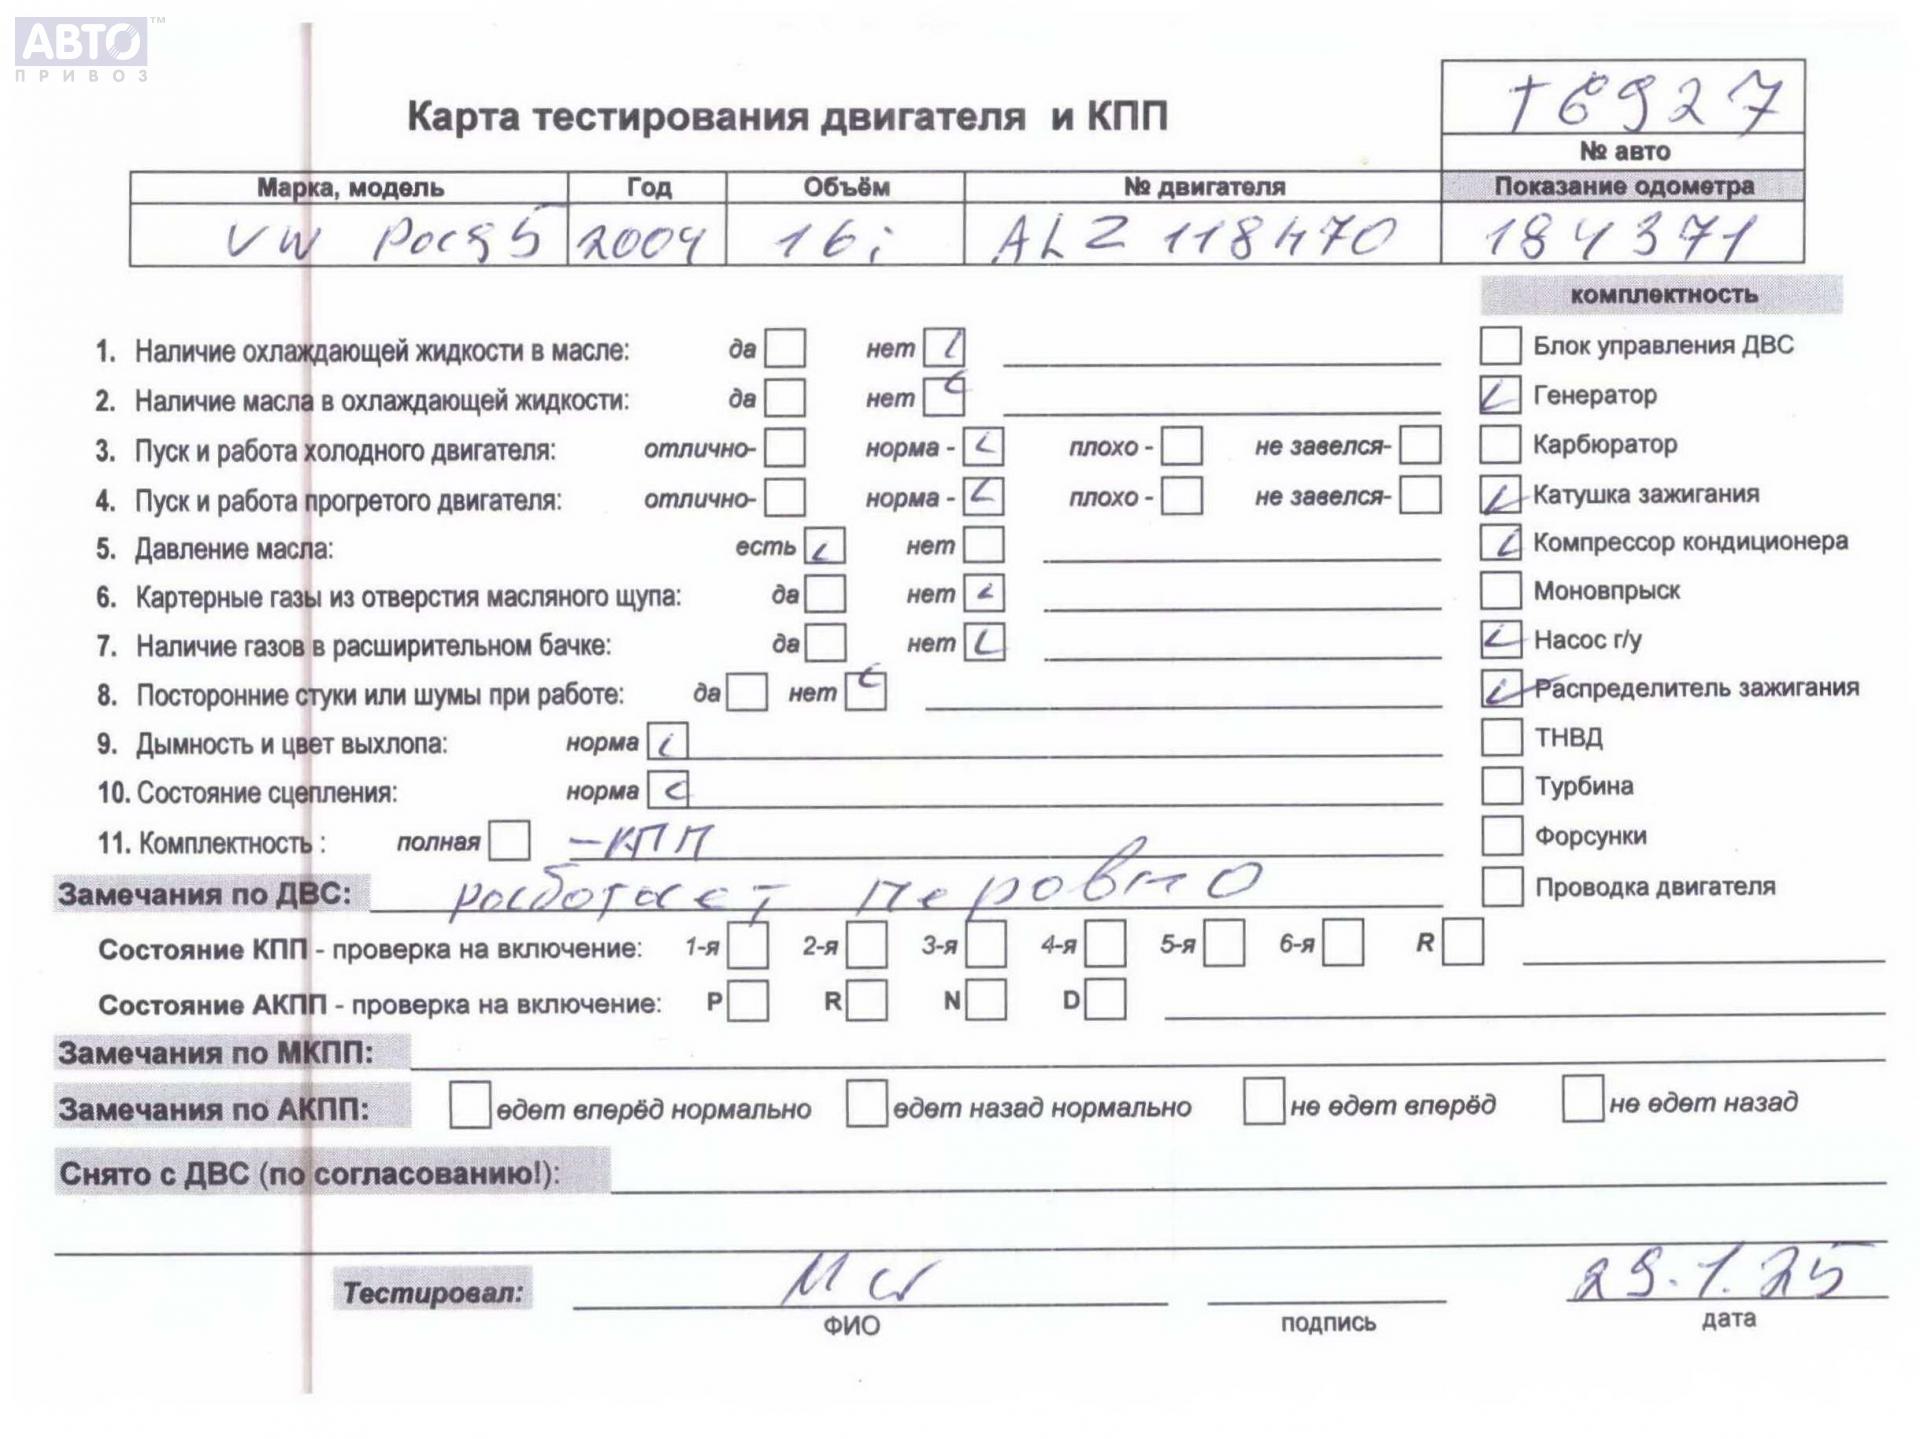 АВТО™
ПРИВОЗ
Карта тестирования двигателя и КПП
т6927
№ авто
Марка, модель Год Объём № двигателя Показание одометра
VW Рося5 2004 16i ALZ 118470 184371
комплектность
1. Наличие охлаждающей жидкости в масле: да нет
Блок управления ДВС
2. Наличие масла в охлаждающей жидкости: да нет
Генератор
3. Пуск и работа холодного двигателя: отлично- норма - плохо - не завелся-
Карбюратор
4. Пуск и работа прогретого двигателя: отлично- норма - плохо - не завелся-
Катушка зажигания
5. Давление масла: есть нет
Компрессор кондиционера
6. Картерные газы из отверстия масляного щупа: да нет
Моновпрыск
7. Наличие газов в расширительном бачке: да нет
Насос г/у
8. Посторонние стуки или шумы при работе: да нет
Распределитель зажигания
9. Дымность и цвет выхлопа: норма
ТНВД
10. Состояние сцепления: норма
Турбина
11. Комплектность : полная -КПП
Форсунки
Замечания по ДВС: работает неровно
Проводка двигателя
Состояние КПП - проверка на включение: 1-я 2-я 3-я 4-я 5-я 6-я R
Состояние АКПП - проверка на включение: P R N D
Замечания по МКПП:
Замечания по АКПП: едет вперёд нормально едет назад нормально не едет вперёд не едет назад
Снято с ДВС (по согласованию!):
Тестировал: 29.1.25
ФИО подпись дата